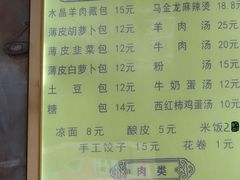 水晶羊肉藏包 15元 马金龙麻辣烫 18.8
薄皮胡萝卜包 12元 羊肉汤 25元
薄皮韭菜包 12元 牛肉汤 25元
薄皮白萝卜包 12元 粉汤 15元
土豆包 12元 牛奶蛋汤 12元
糖包 14元 西红柿鸡蛋汤 10元
凉面 8元 酿皮 5元 米饭2
手工饺子 15元 花卷 1元
肉类